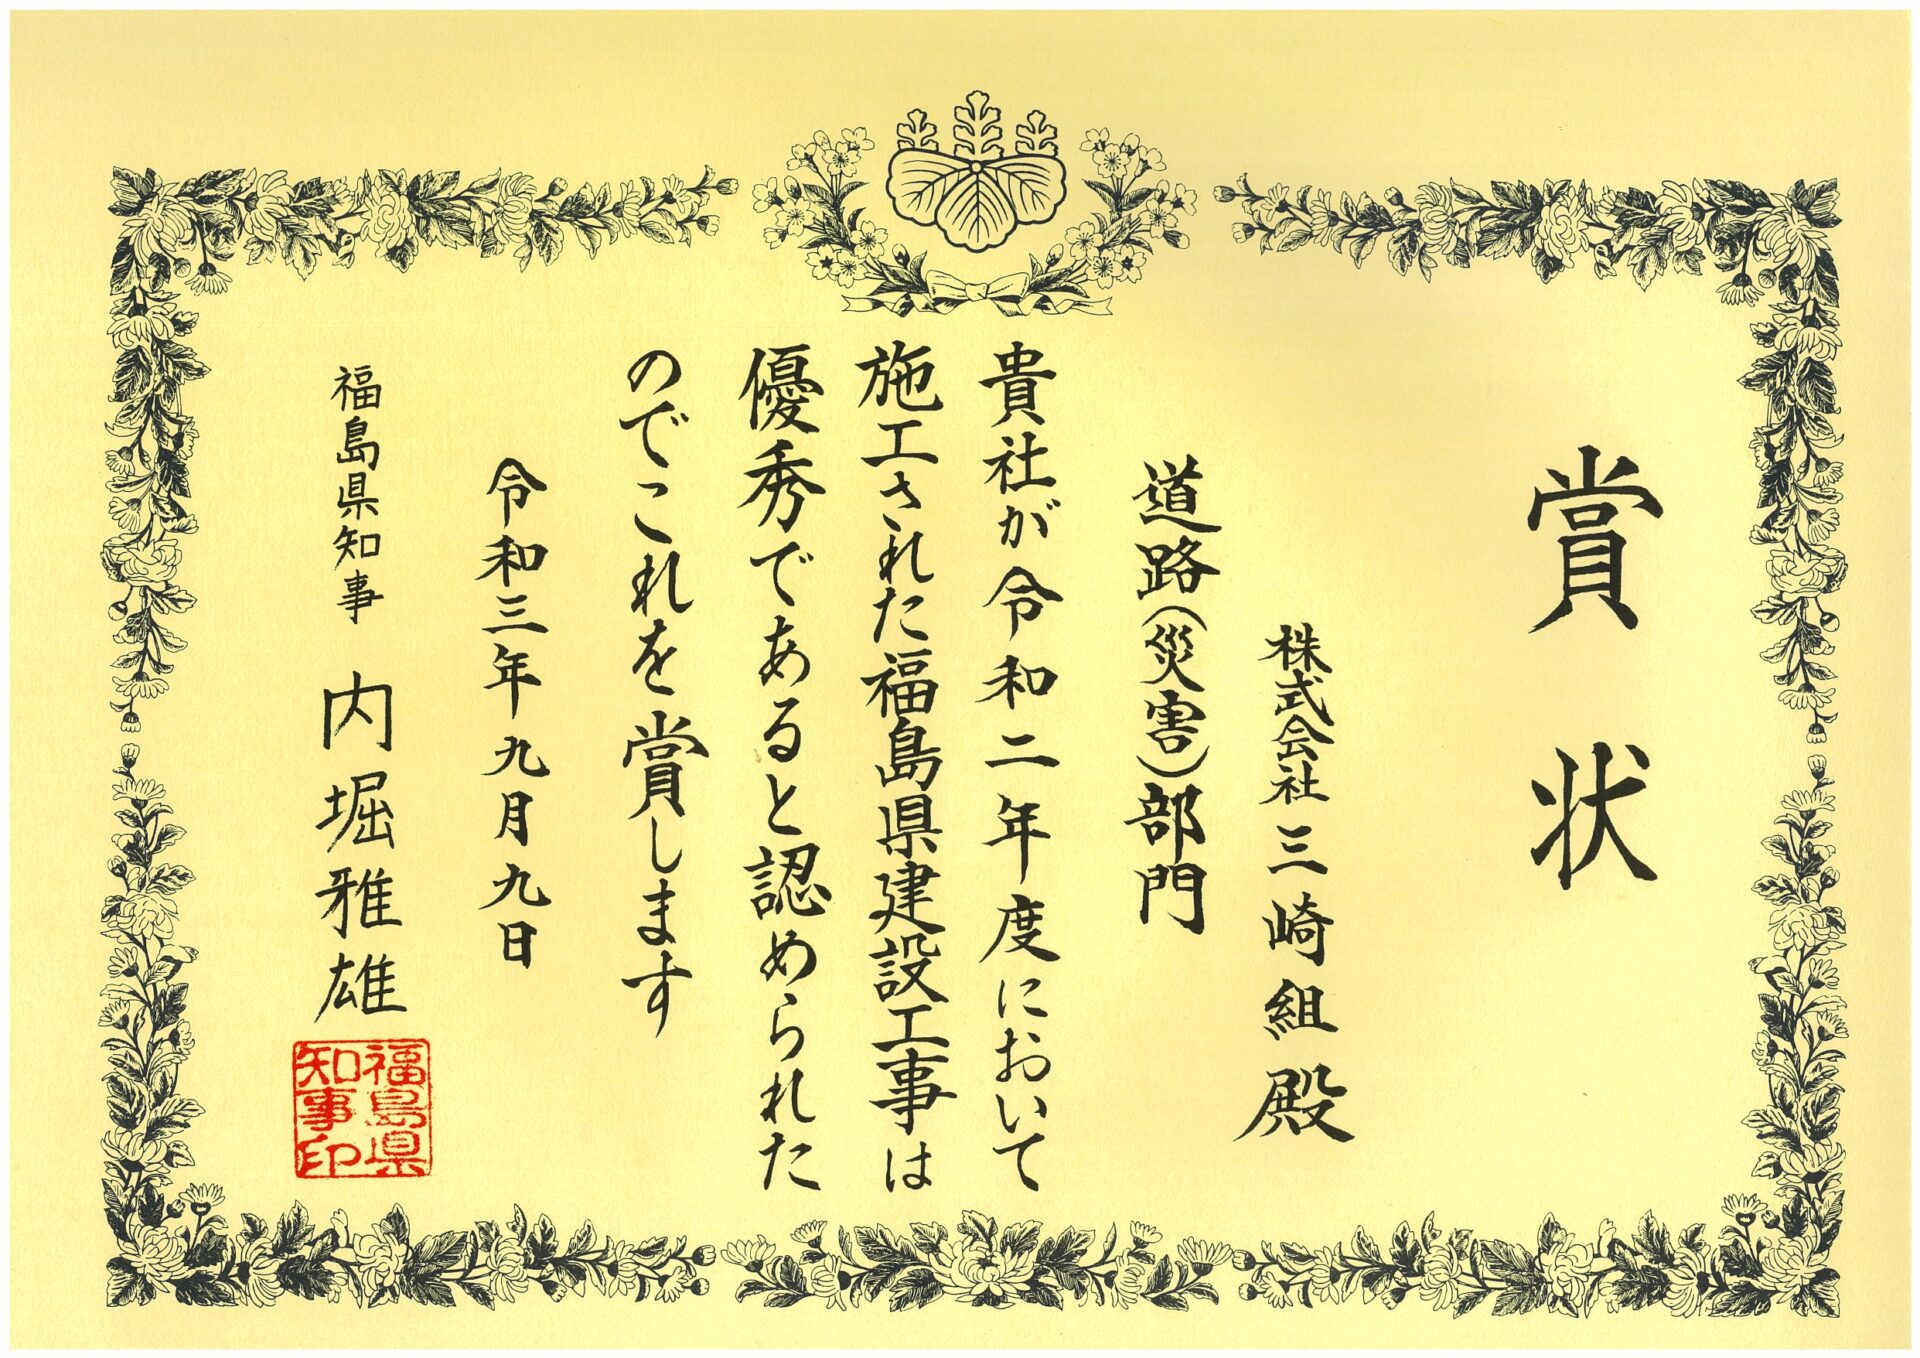 賞状
株式会社三崎組殿
道路(災害)部門
貴社が令和二年度において
施工された福島県建設工事は
優秀であると認められた
のでこれを賞します
令和三年九月九日
福島県知事 内堀雅雄
福島県
知事印